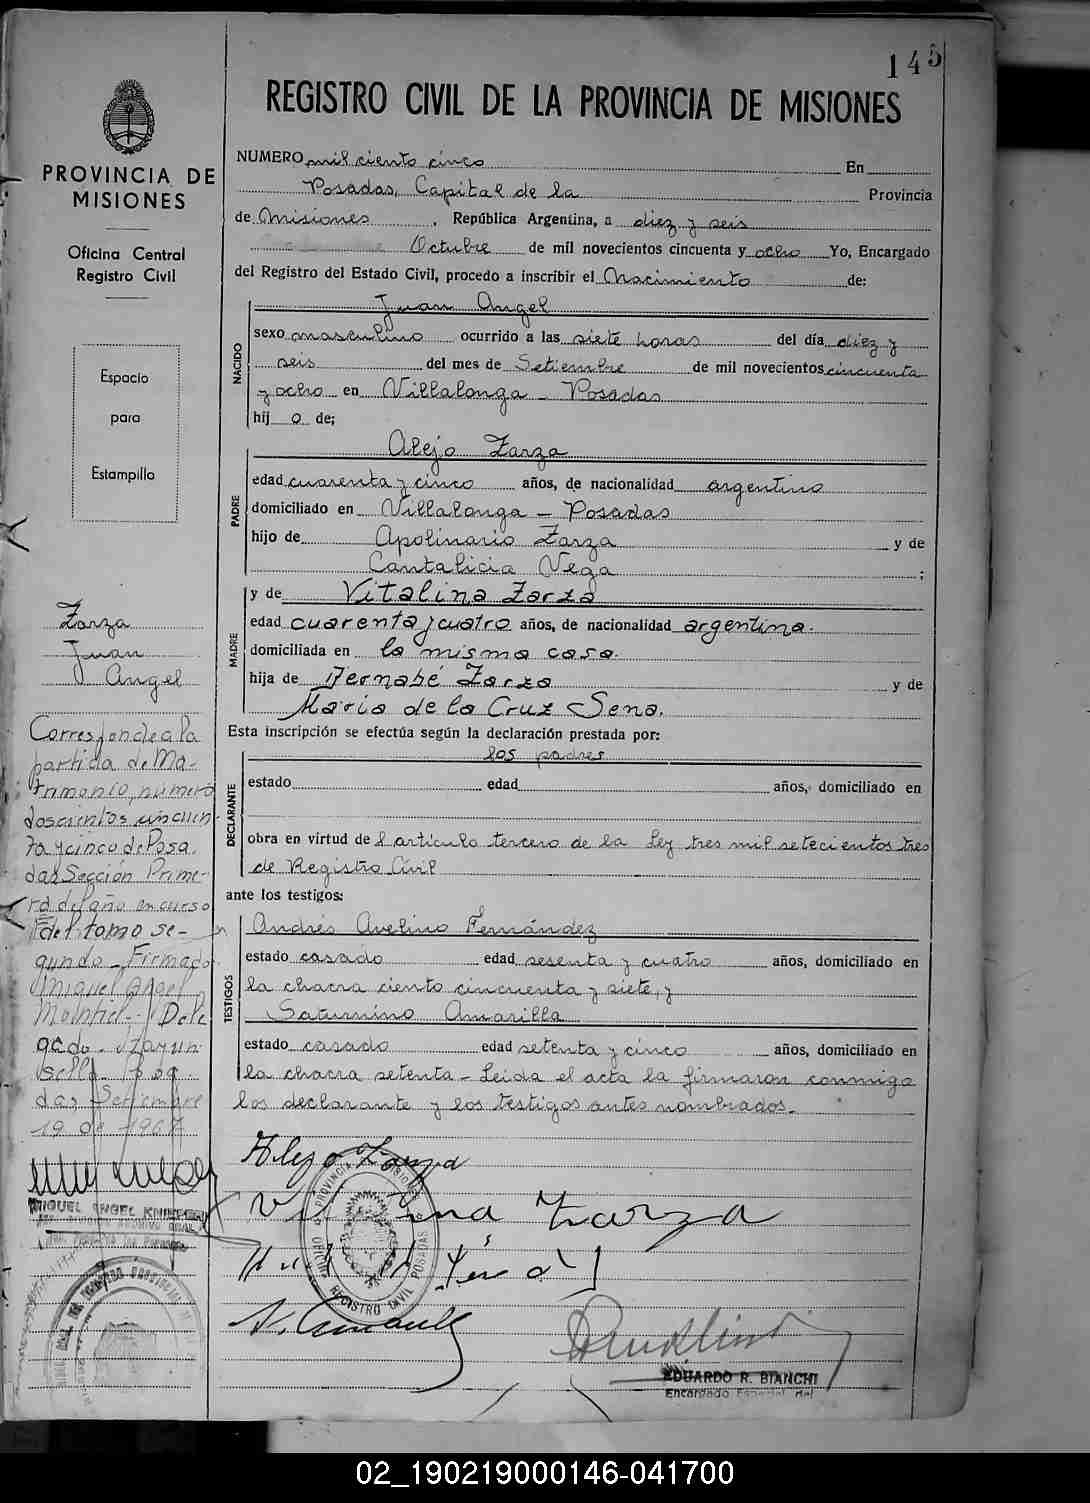 145
REGISTRO CIVIL DE LA PROVINCIA DE MISIONES
PROVINCIA DE
MISIONES
Oficina Central
Registro Civil
Espacio
para
Estampilla
NUMERO mil ciento cinco En
Posadas, Capital de la Provincia
de Misiones, República Argentina, a diez y seis
Octubre de mil novecientos cincuenta y ocho Yo, Encargado
del Registro del Estado Civil, procedo a inscribir el Nacimiento de:
NACIDO
Juan Angel
sexo masculino ocurrido a las siete horas del día diez y
seis del mes de Setiembre de mil novecientos cincuenta
y ocho en Villalonga - Posadas
hij o de;
PADRE
Alejo Zarza
edad cuarenta y cinco años, de nacionalidad argentino
domiciliado en Villalonga - Posadas
hijo de Apolinario Zarza y de
Cantalicia Vega ;
MADRE
y de Vitalina Zarza
edad cuarenta y cuatro años, de nacionalidad argentina.
domiciliada en la misma casa.
hija de Bernabé Zarza y de
Maria de la Cruz Sena.
Esta inscripción se efectúa según la declaración prestada por:
DECLARANTE
los padres
estado edad años, domiciliado en
obra en virtud del artículo tercero de la Ley tres mil setecientos tres
de Registro Civil
ante los testigos:
TESTIGOS
Andrés Avelino Fernández
estado casado edad sesenta y cuatro años, domiciliado en
la chacra ciento cincuenta y siete, y
Saturnino Amarilla
estado casado edad setenta y cinco años, domiciliado en
la chacra setenta - Leida el acta la firmaron conmigo
los declarante y los testigos antes nombrados.
Alejo Zarza
Vitalina Zarza
S. Amarilla
PROVINCIA DE MISIONES
OFICINA REGISTRO CIVIL POSADAS
EDUARDO R. BIANCHI
Encargado Especial del
Zarza
Juan
Angel
Corresponde a la
partida de Ma-
trimonio, número
doscientos cincuen-
ta y cinco de Posa-
das Sección Prime-
ra del año en curso
del tomo se-
gundo - Firmado
Miguel Angel
Dele
gado -
sello Posa
das Setiembre
19 de 1967
MIGUEL ANGEL
02_190219000146-041700